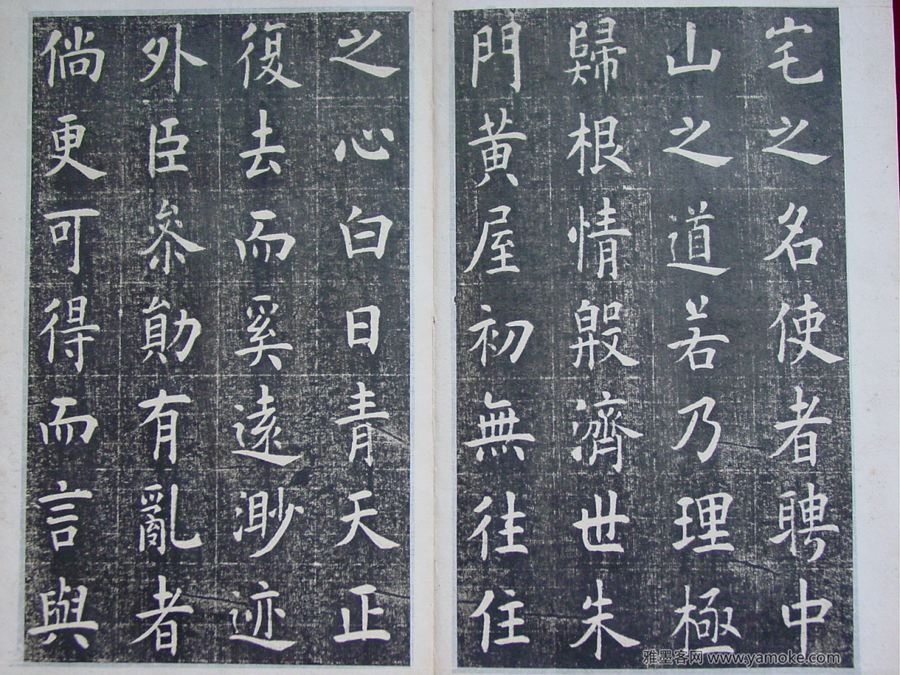 宅之名使者聘中
山之道若乃理極
歸根情殷濟世朱
門黄屋初無往住
之心白日青天正
復去而奚遠渺迹
外臣叅勛有亂者
倘更可得而言與
雅墨客网 www.yamoke.com